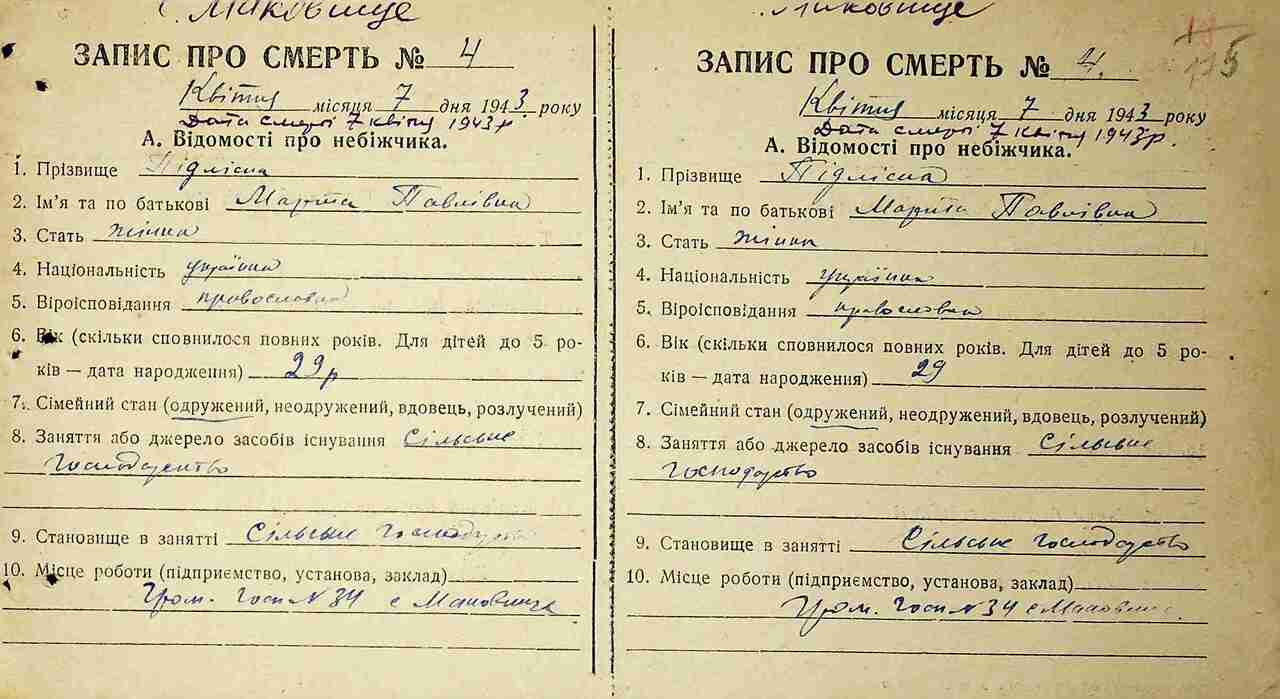 с. Маковище
ЗАПИС ПРО СМЕРТЬ № 4
Квітня місяця 7 дня 1943 року
Дата смерті 7 квітня 1943 р
А. Відомості про небіжчика.
1. Прізвище Підлісна
2. Ім'я та по батькові Марта Павлівна
3. Стать жінка
4. Національність українка
5. Віроісповідання православна
6. Вік (скільки сповнилося повних років. Для дітей до 5 ро-
ків — дата народження) 29 р
7. Сімейний стан (одружений, неодружений, вдовець, розлучений)
8. Заняття або джерело засобів існування Сільське
Господарство
9. Становище в занятті Сільське Господарство
10. Місце роботи (підприємство, установа, заклад)
Гром. Госп N 34 с Маковища
Маковище
ЗАПИС ПРО СМЕРТЬ № 4.
Квітня місяця 7 дня 1943 року
Дата смерті 7 квітня 1943 р.
А. Відомості про небіжчика.
1. Прізвище Підлісна
2. Ім'я та по батькові Марта Павлівна
3. Стать жінка
4. Національність українка
5. Віроісповідання православна
6. Вік (скільки сповнилося повних років. Для дітей до 5 ро-
ків — дата народження) 29
7. Сімейний стан (одружений, неодружений, вдовець, розлучений)
8. Заняття або джерело засобів існування Сільське
господарство
9. Становище в занятті Сільське господарство
10. Місце роботи (підприємство, установа, заклад)
Гром. Госп N 34 с Маковища